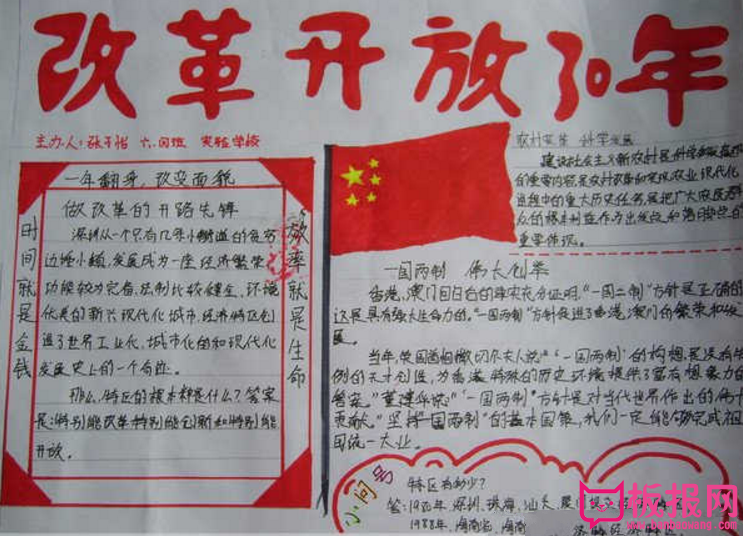 改革开放30年
主办人:张子怡 六四班 实验学校
一年翻身,改变面貌
做改革的开路先锋
深圳从一个只有几条小街道的贫穷
边陲小镇,发展成为一座经济繁荣
功能较为完备,法制比较健全,环境
优美的新兴现代化城市,经济特区创
造了世界工业化,城市化的和现代化
发展史上的一个奇迹。
那么,特区的根本特是什么?答案
是:特别能改革特别能创新和特别能
开放。
时间就是金钱
效率就是生命
农村改革 科学发展
建设社会主义新农村是
的重要内容是农村改革和实现农业现代化
进程中的重大历史任务是把广大农民群
众的根本利益作为出发点和落脚点的
重要体现。
一国两制 伟大创举
香港,澳门回归日后的事实充分证明,"一国二制"方针是正确的
这是具有强大生命力的,"一国两制"方针促进了香港,澳门的繁荣和发
展。
当年,英国首相撒切尔夫人说:"'一国两制'的构想,是没有先
例的天才创造,为香港特殊的历史环境提供了富有想象力的
答案。""一国两制"方针是对当代世界作出的伟大
贡献。"坚持"一国两制"的基本国策,我们一定能够完成祖
国统一大业。
小问号
特区有多少?
答:1980年,深圳,珠海,汕头,厦门
1988年,海南岛,海南
板报网
www.banbaowang.com